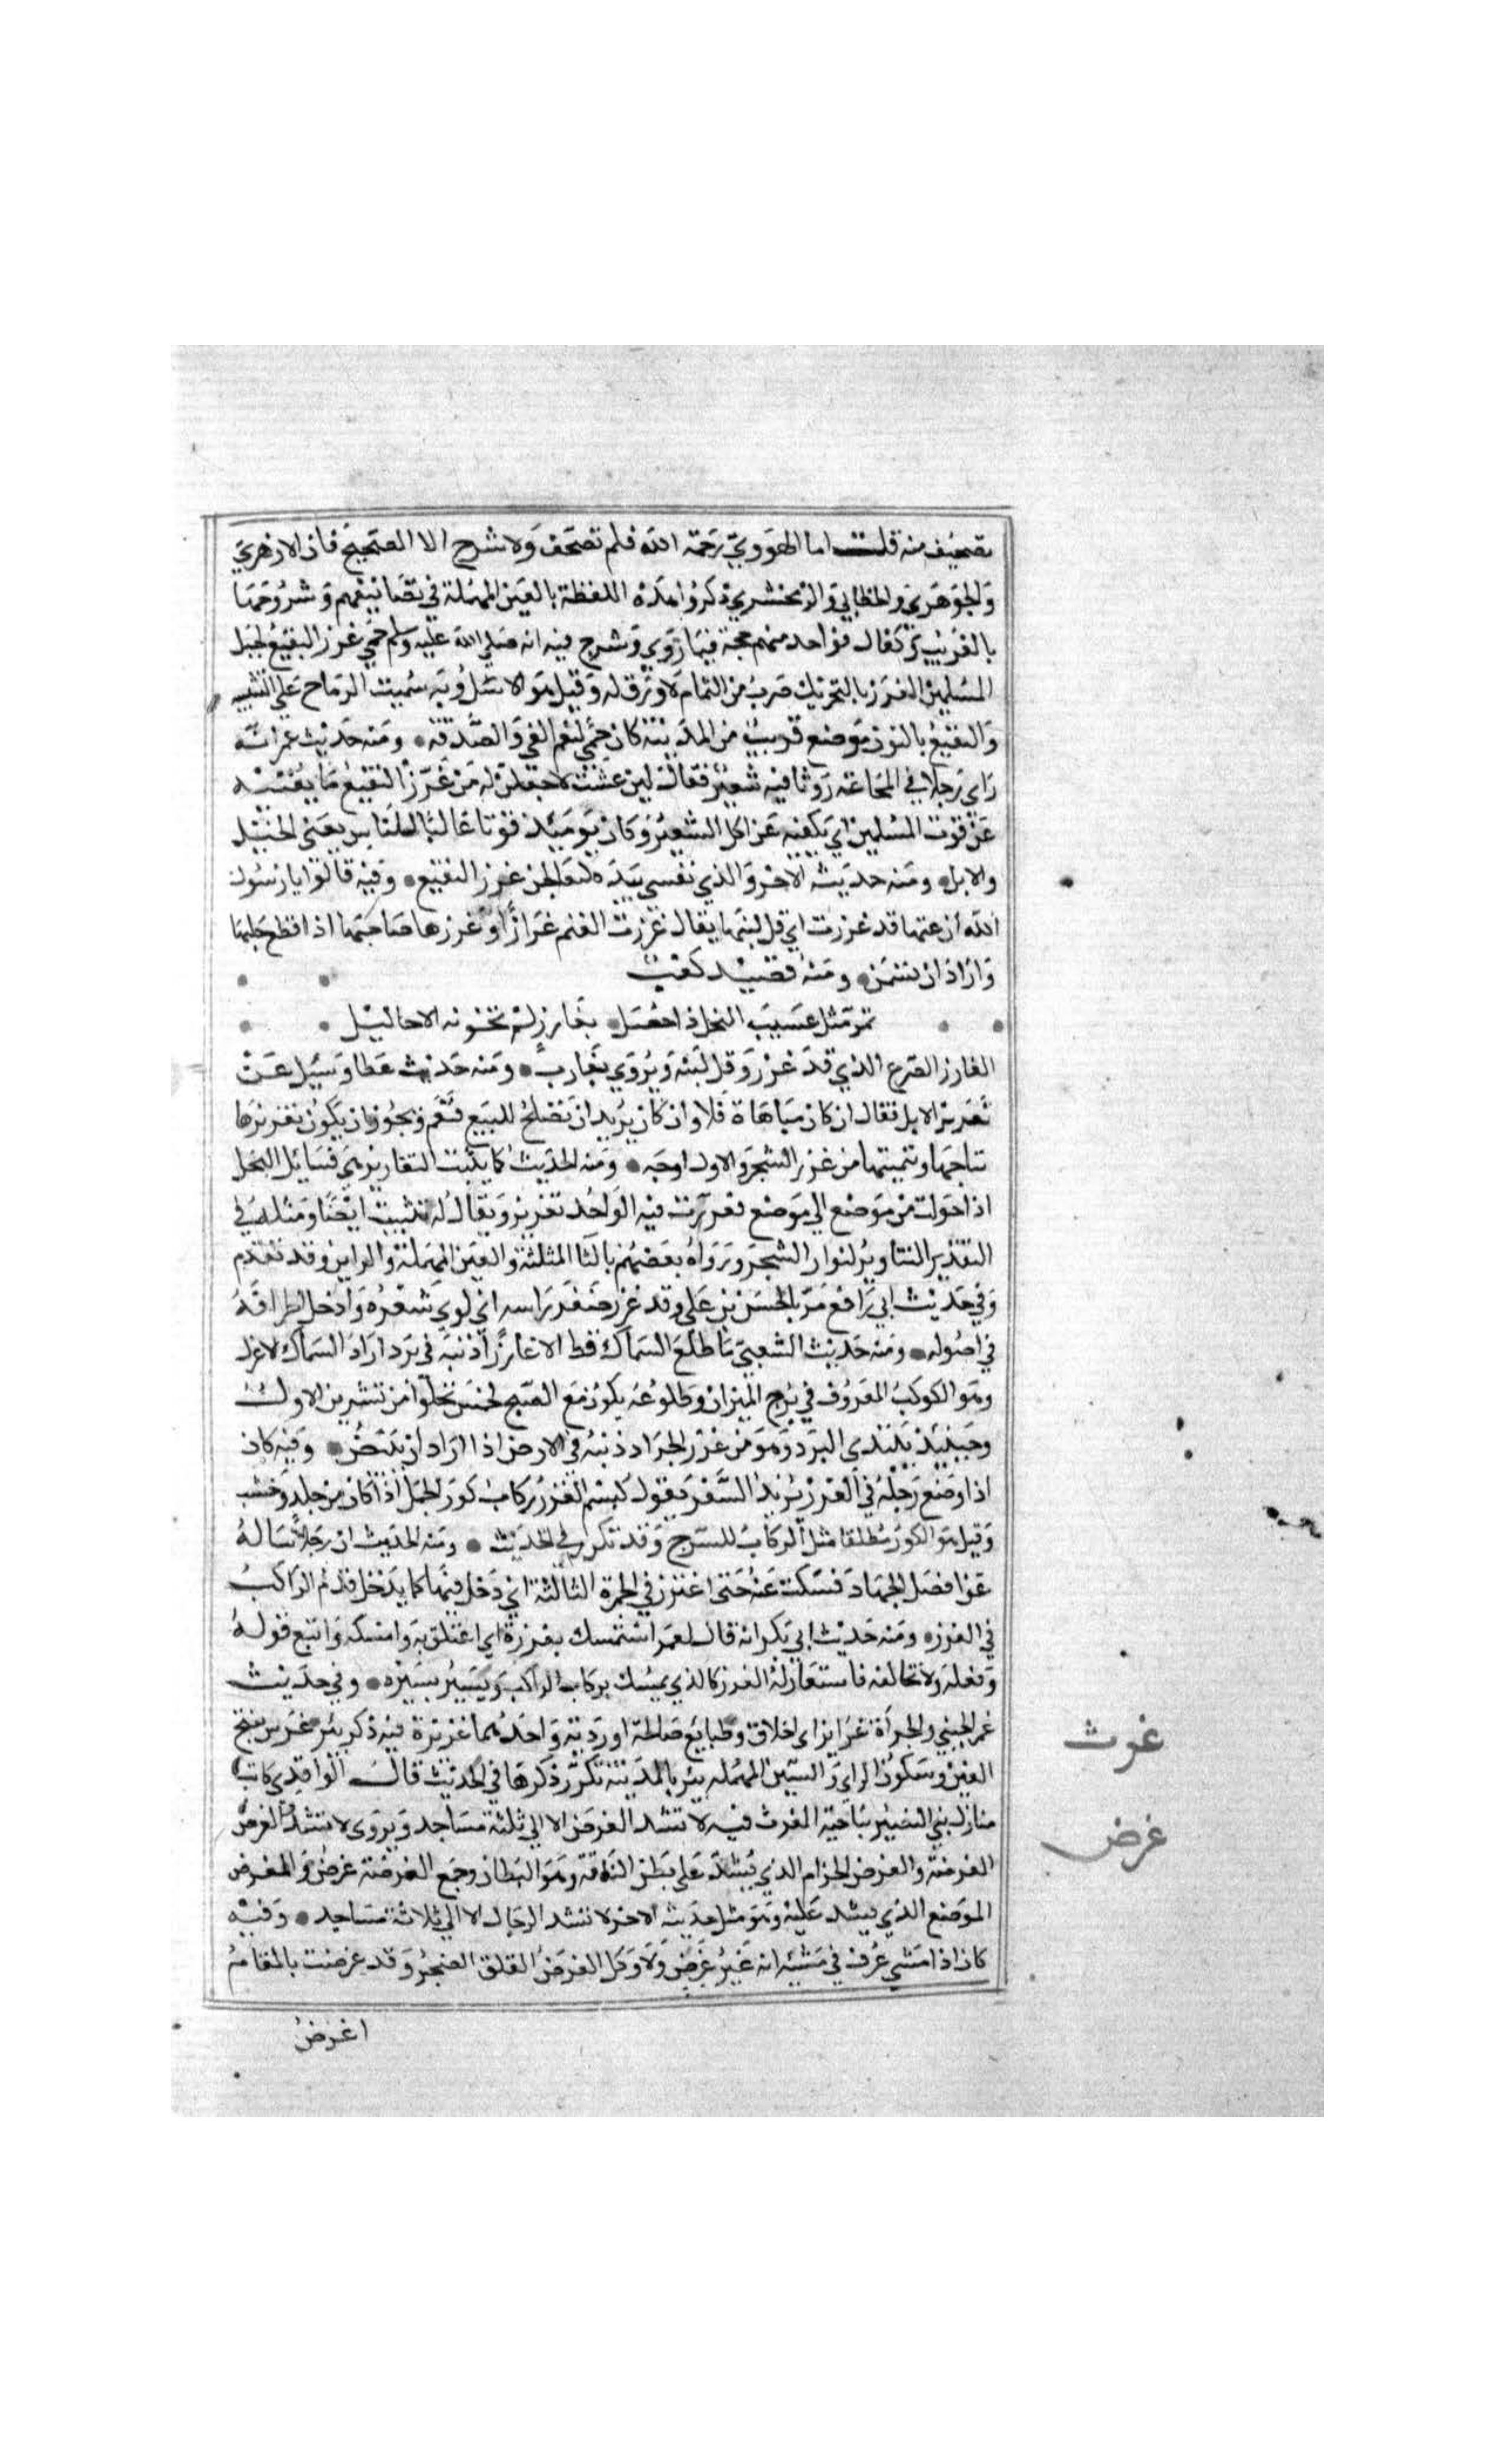 تصحيف منه قلت اما الهروي رحمة الله فلم تصحف ولا شرح الا الصحيح فان الازهري
والجوهري والخطابي والزمخشري ذكروا هذه اللفظة بالعين المهملة في تصانيفهم وشروحها
بالغريب وكفاك فواحد منهم حجة فيما روي وشرح فيه انه صلي الله عليه وسلم حمي غرز البقيع لخيل
المسلمين الغرز بالتحريك ضرب من الثمام لا ورق له وقيل هو الاسل وبه سميت الرماح علي التشبيه
والنقيع بالنون موضع قريب من المدينة كان حمي لنعم الفي والصدقة ومنه حديث عمر انه
راي رجلا في المجاعة روثا فيه شعير فقال لين عشت لاجعلن له من غرز النقيع ما يغنيه
عن قوت المسلمين اي يكفيه عن اكل الشعير وكان يوميذ قوتا غالبا للناس يعني الخيل
والابل ومنه حديثه الاخر والذي نفسي بيده لتعالجن غرز النقيع وفيه قالوا يا رسول
الله ان غنمنا قد غرزت اي قل لبنها يقال غرزت الغنم غرازا وغرزها صاحبها اذا قطع حلبها
واراد ان تسمن ومنه قصيد كعب
تمر مثل عسيب النخل ذا خصل بغارز لم تخونه الاحاليل
الغارز الضرع الذي قد غرز وقل لبنه ويروي بغارب ومنه حديث عطا وسيل عن
تغريز الابل فقال ان كان مباهاة فلا وان كان يريد ان تصلح للبيع فنعم ويجوز ان يكون تغريزها
نتاجها وتنميتها من غرز الشجر والاول اوجه ومنه الحديث كما ينبت التغاريز هي فسايل النخل
اذا حولت من موضع الي موضع فغرزت فيه الواحد تغريز ويقال له تنبيت ايضا ومثله في
التقدير التناوير لنوار الشجر ورواه بعضهم بالثا المثلثة والعين المهملة والراين وقد تقدم
وفي حديث ابي رافع مر بالحسن بن علي وقد غرز ضفر راسه اي لوي شعره وادخل اطرافه
في اصوله ومنه حديث الشعبي ما طلع السماك قط الا غارزا ذنبه في برد اراد السماك الاعزل
وهو الكوكب المعروف في برج الميزان وطلوعه يكون مع الصبح لخمس تخلوا من تشرين الاول
وحينيذ يبتدي البرد وهو من غرز الجراد ذنبه في الارض اذا اراد ان يبيض وفيه كان
اذا وضع رجله في الغرز يريد السفر يقول بسم الغرز ركاب كور الجمل اذا كان من جلد وخشب
وقيل هو الكور مطلقا مثل الركاب للسرج وقد تكرر في الحديث ومنه الحديث ان رجلا ساله
عن افضل الجهاد فسكت عنه حتى اغترز في الجمرة الثالثة اي دخل فيها كما يدخل قدم الراكب
في الغرز ومنه حديث ابي بكر انه قال لعمر استمسك بغرزه اي اعتلق به وامسكه واتبع قوله
وفعله ولا تخالفه فاستعار له الغرز كالذي يمسك بركاب الراكب ويسير بسيره وفي حديث
عمر الجبن والجراة غرايز اي اخلاق وطبايع صالحة او ردية واحدتها غريزة فيه ذكر بير غرس بفتح
الغين وسكون الراي والسين المهمله بير بالمدينة تكرر ذكرها في الحديث قال الواقدي كانت
منازل بني النضير بناحية الغرث فيه لا تشد الغرض الا الي ثلثة مساجد ويروي لا تشد الغرض
الغرضة والغرض الحزام الذي يشد علي بطن الناقة وهو البطان وجمع الغرضة غرض والمغرض
الموضع الذي يشد عليه وهو مثل حديثه الاخر لا تشد الرحال الا الي ثلاثة مساجد وفيه
كان اذا مشي عرف في مشيه انه غير غرض ولا وكل الغرض القلق الضجر وقد غرضت بالمقام
اغرض
غوث
غرض